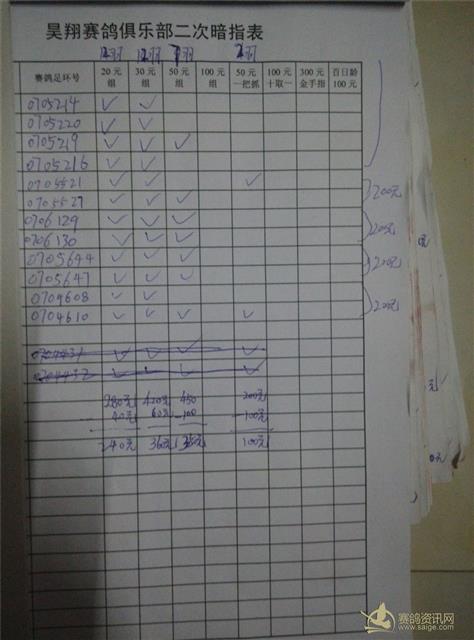 昊翔赛鸽俱乐部二次暗指表
12羽 12羽 7羽 2羽
赛鸽足环号 20元组 30元组 50元组 100元组 50元一把抓 100元十取一 300元金手指 百日龄100元
0705214 ✓ ✓
0705220 ✓ ✓
0705219 ✓ ✓ ✓
0705216 ✓ ✓
0705521 ✓ ✓ ✓
0705527 ✓ ✓ ✓ 200元
0706129 ✓ ✓ ✓
0706130 ✓ ✓ ✓ 200元
0705644 ✓ ✓ ✓
0705647 ✓ ✓ ✓ 200元
0704608 ✓ ✓
0704610 ✓ ✓ ✓ ✓ 200元
0704431 ✓ ✓ ✓ ✓
0704432 ✓ ✓ ✓ ✓
280元 420元 450 200元
40元 60元 -100 -100元
240元 360元 350元 100元
赛鸽资讯网
www.saige.com